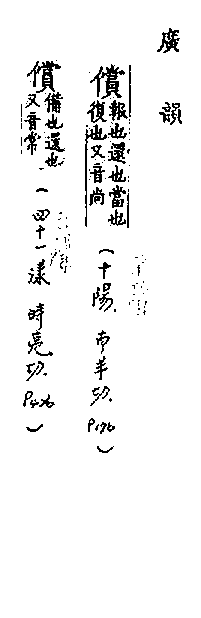 廣韻
償 報也還也當也復也又音尚 (十陽. 市羊切. P176)
償 備也還也又音常. (四十一漾 時亮切. P426)